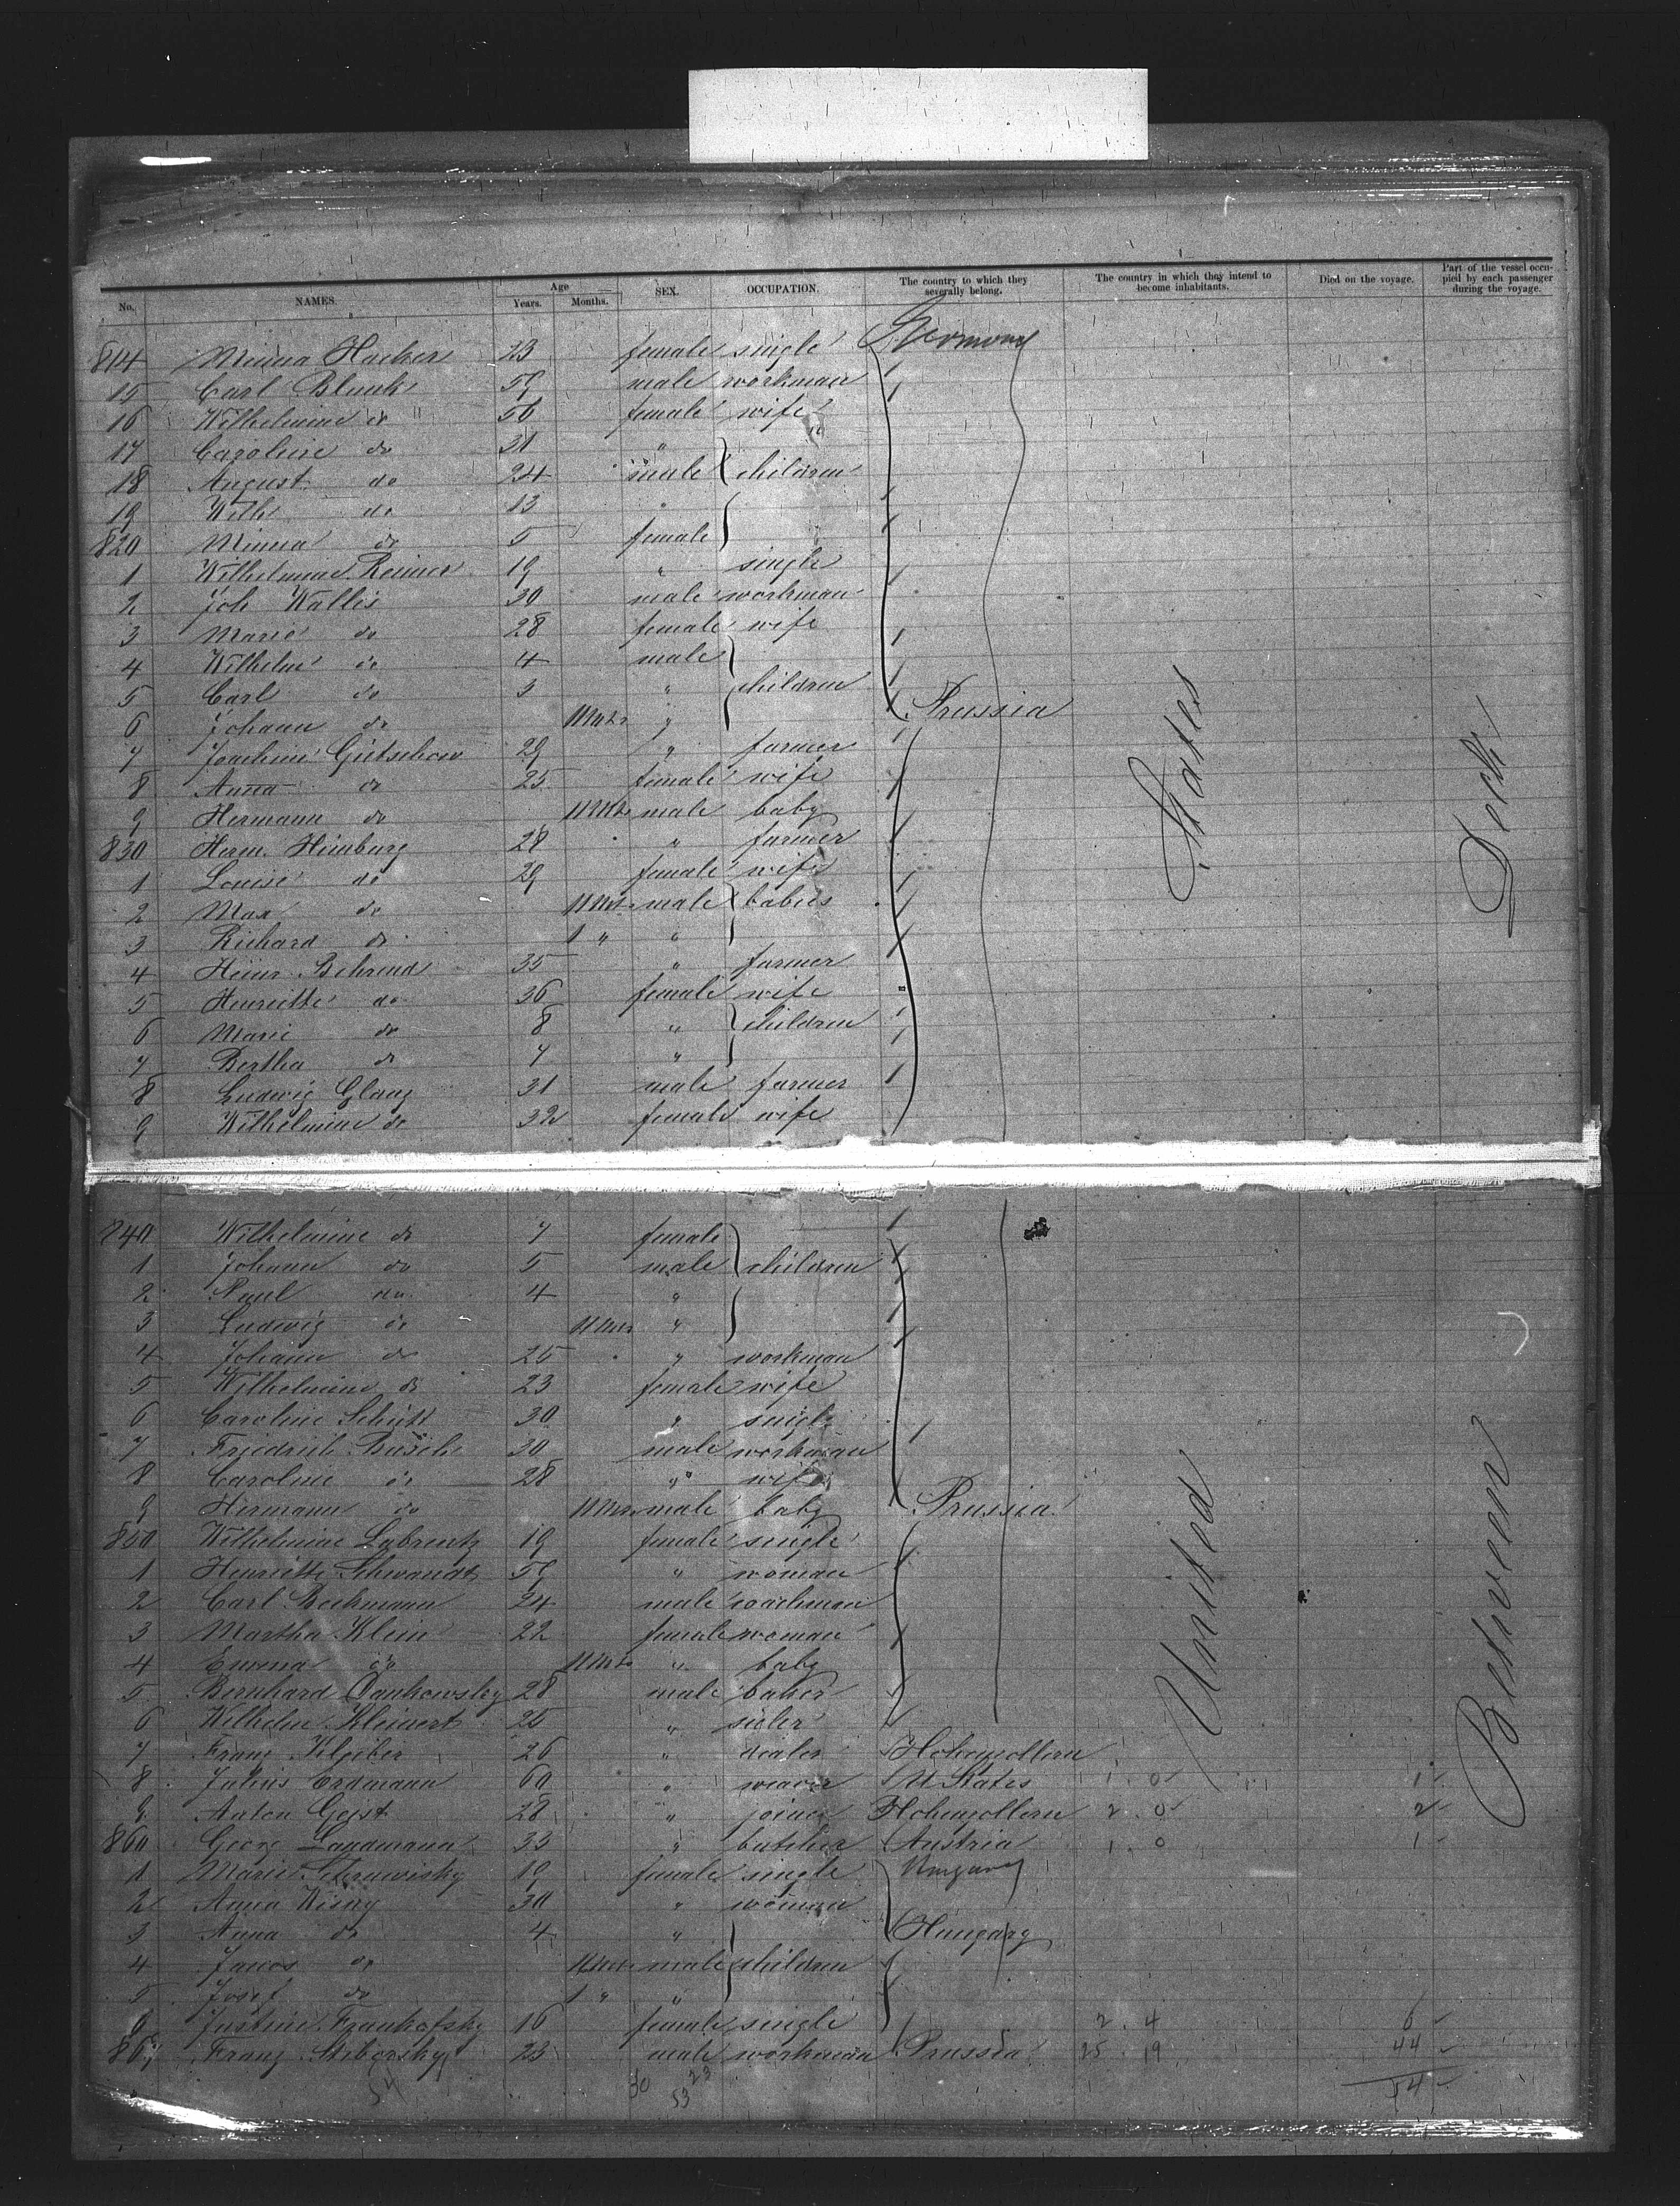 No. NAMES. Age Years. Months. SEX. OCCUPATION. The country to which they severally belong. The country in which they intend to become inhabitants. Died on the voyage. Part of the vessel occupied by each passenger during the voyage.
Germany
814 Minna Hacker 23 female single
15 Carl Blunk 59 male workman
16 Wilhelmine do 56 female wife
17 Caroline do 31 "
18 August do 24 male children
19 Wilh do 13 "
820 Minna do 5 female
1 Wilhelmine Reimer 19 " single
2 Joh Wallis 30 male workman
3 Marie do 28 female wife
4 Wilhelm do 4 male
5 Carl do 3 " children
6 Johann do 11 Mts " Prussia
7 Joachim Gütschow 29 " farmer
8 Anna do 25 female wife
9 Hermann do 11 Mts male baby
830 Herm. Himburg 28 " farmer
1 Louise do 29 female wife
2 Max do 11 Mts male babies
3 Richard do 1 " "
4 Heinr. Behrend 35 " farmer
5 Henriette do 36 female wife
6 Marie do 8 " children
7 Bertha do 7 "
8 Ludwig Glang 31 male farmer
9 Wilhelmine do 32 female wife
840 Wilhelmine do 7 female
1 Johann do 5 male children
2 Paul do 4 "
3 Ludwig do 11 Mts "
4 Johann do 25 " workman
5 Wilhelmine do 23 female wife
6 Caroline Schütt 30 " single
7 Friedrich Busch 30 male workman
8 Caroline do 28 " wife
9 Hermann do 11 Mts male baby Prussia
850 Wilhelmine Labrentz 19 female single
1 Henriette Schwandt 59 " woman
2 Carl Beckmann 24 male coachman
3 Martha Klein 22 female woman
4 Emma do 11 Mts " baby
5 Bernhard Dankowsky 28 male baker
6 Wilhelm Kleinert 25 "
7 Franz Kleiber 26 " dealer Hohenzollern
8 Julius Erdmann 60 " weaver U States 1 . 0 1
9 Anton Geist 28 " joiner Hohenzollern 2 . 0 2
860 Georg Landmann 33 " butcher Austria 1 . 0 1
1 Marie 19 female single Ungarn
2 Anna Wisny 30 " woman
3 Anna do 4 " Hungary
4 Janos do 11 Mts male children
5 Josef do 1 " "
6 Justine Frankofsky 16 female single 2 . 4 6
867 Franz Stiborsky 23 male workman Prussia 25 . 19 44
54 30 23 53 54
United States
Between Deck